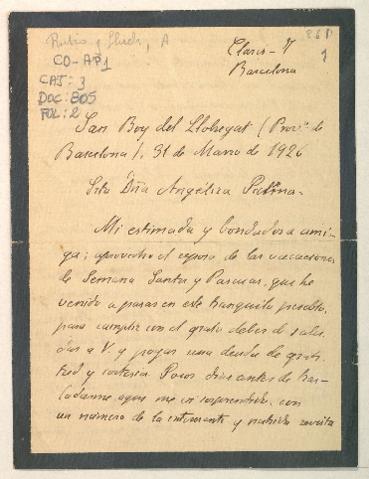 Rubió y Lluch, A
CO-AP1
CAJ: 3
DOC: 805
FOL: 2
1
Claris - 7
Barcelona
San Boy del Llobregat (Prov.ª de
Barcelona), 31 de Marzo de 1926
Srta Dña Angélica Palma.
Mi estimada y bondadosa ami-
ga: aprovecho el reposo de las vacaciones
de Semana Santa y Pascuas, que he
venido a pasar en este tranquilo pueblo,
para cumplir con el grato deber de salu
dar a V. y pagar una deuda de grati
tud y cortesía. Pocos dias antes de tras-
ladarme aquí me vi sorprendido, con
un número de la interesante y nutrida revista